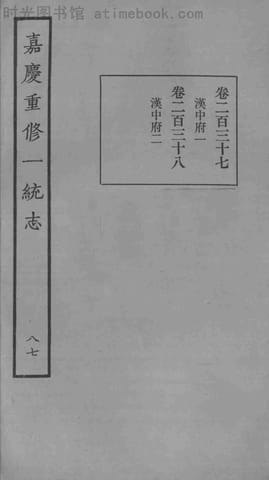 时光图书馆 - www.atimebook.com
卷二百三十七
漢中府一
卷二百三十八
漢中府二
嘉慶重修一統志
八七